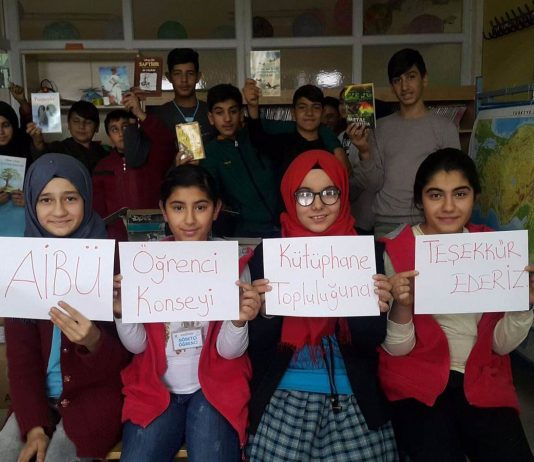 AİBÜ
Öğrenci
Konseyi
Kütüphane
Topluluğuna
TEŞEKKÜR
EDERİZ.
NÖBETÇİ
ÖĞRENCİ